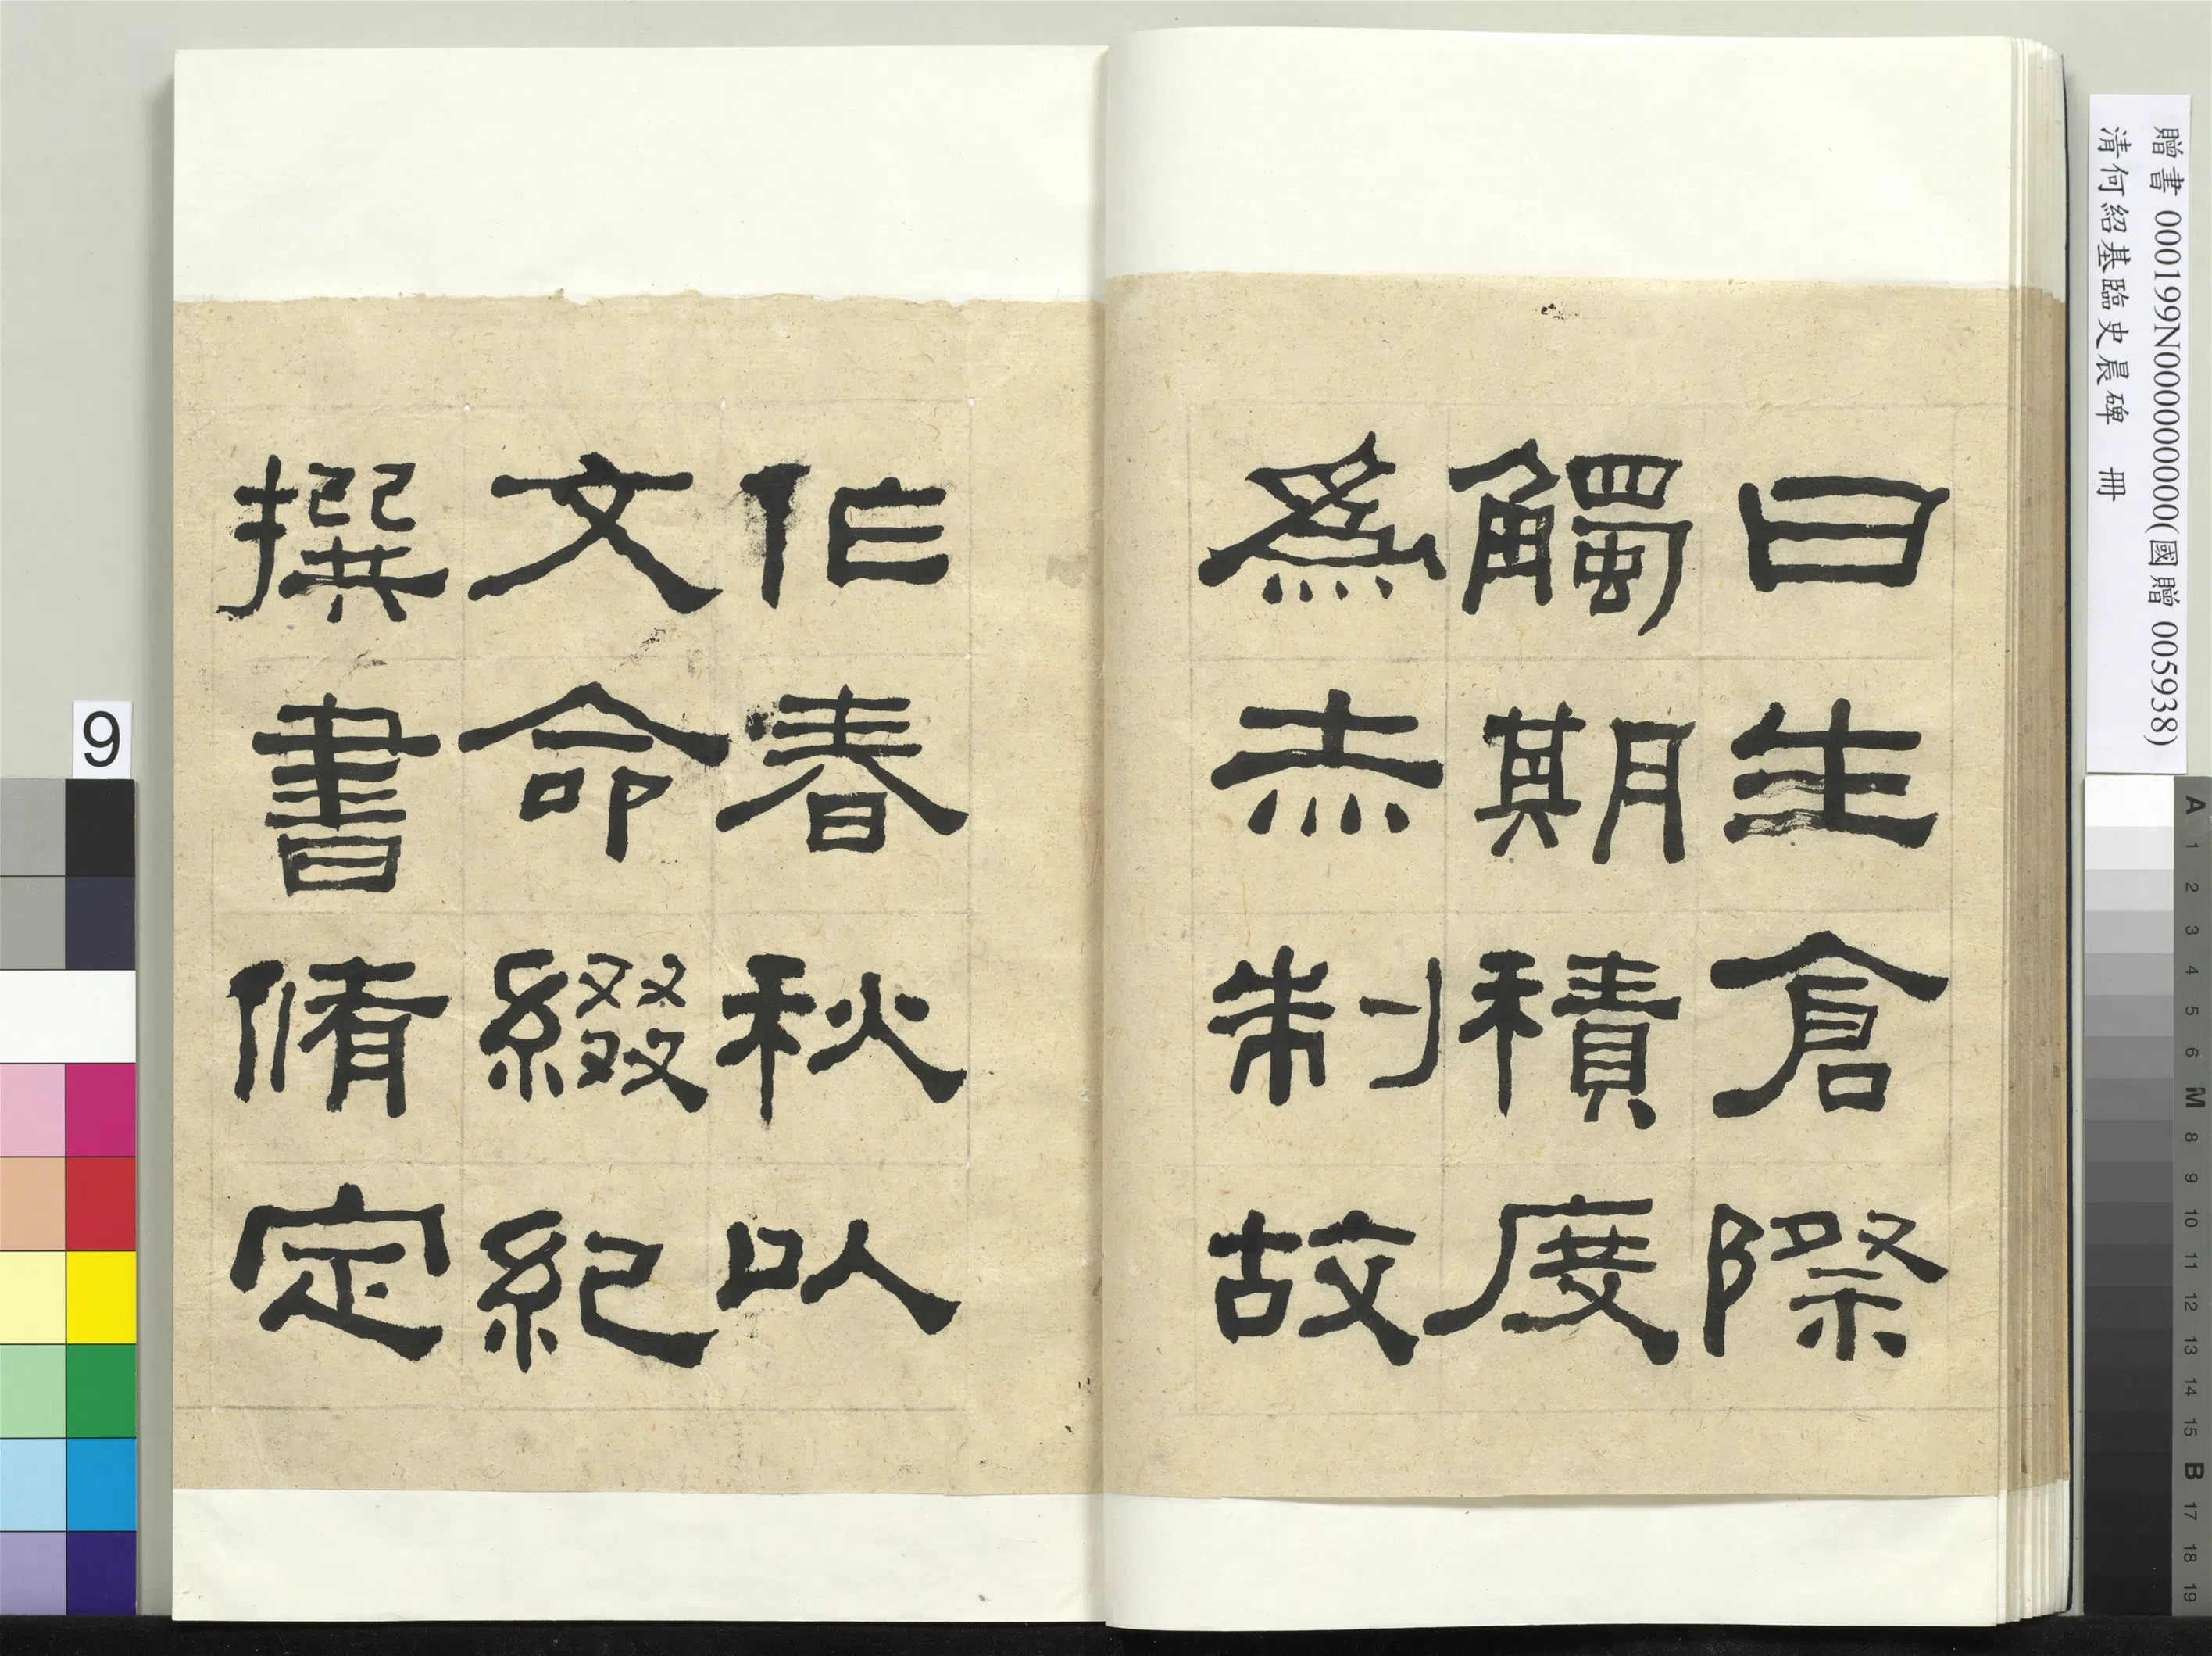 曰生倉際
觸期積度
為赤制故
作春秋以
文命綴紀
撰書脩定
贈書 000199N000000000(國贈 005938)
清何紹基臨史晨碑 冊
9
A 1 2 3 4 5 6 M 8 9 10 11 12 13 14 15 B 17 18 19